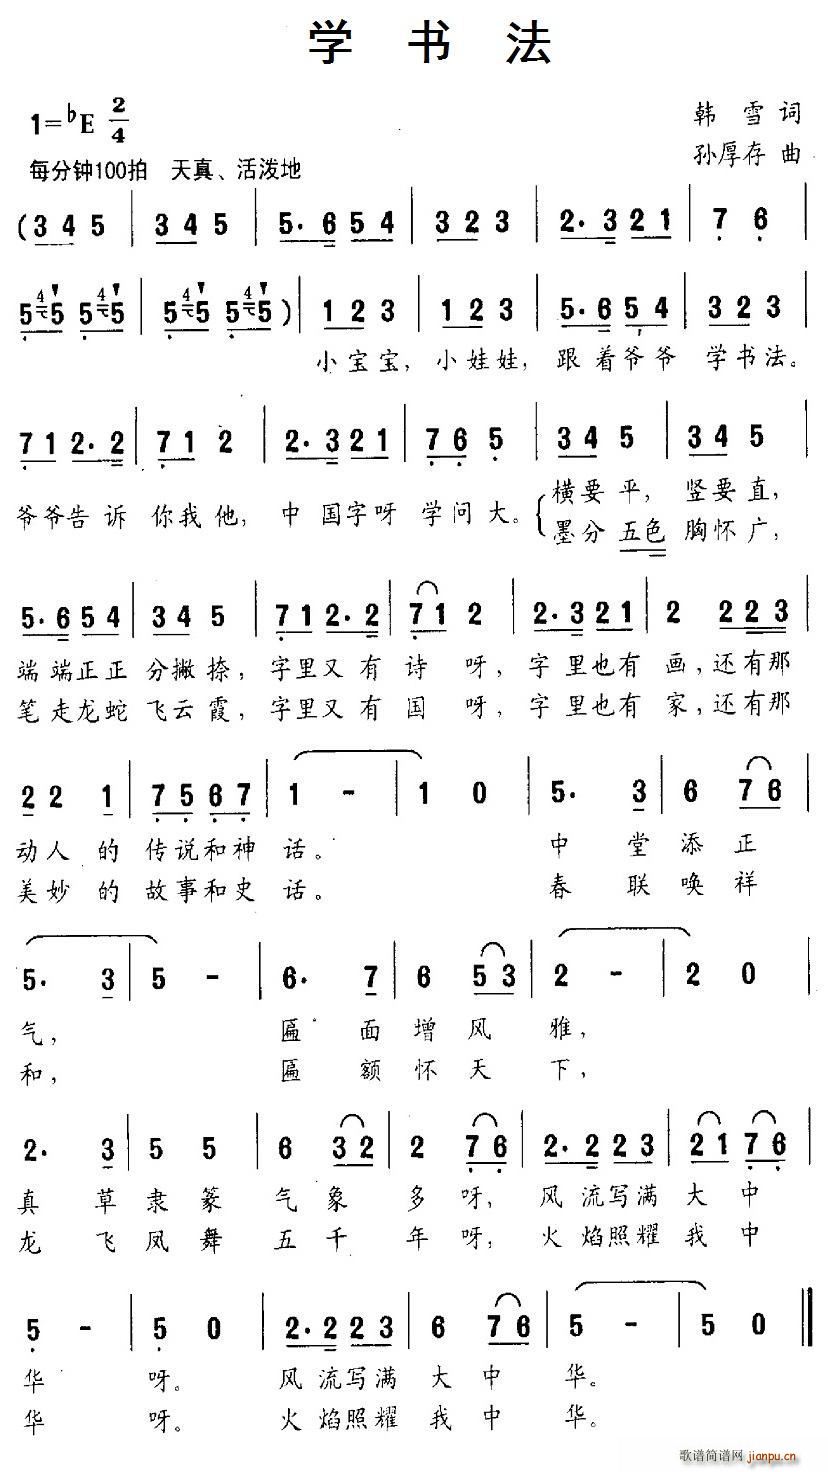 学 书 法
1=♭E 2/4
韩 雪 词
孙厚存 曲
每分钟100拍 天真、活泼地
(3 4 5 | 3 4 5 | 5· 6 5 4 | 3 2 3 | 2· 3 2 1 | 7 6 |
5 5 5 5 | 5 5 5 5 ) | 1 2 3 | 1 2 3 | 5· 6 5 4 | 3 2 3 |
小宝宝, 小娃娃, 跟着爷爷 学书法。
7 1 2· 2 | 7 1 2 | 2· 3 2 1 | 7 6 5 | 3 4 5 | 3 4 5 |
爷爷告诉 你我他, 中国字呀 学问大。
横要平, 竖要直,
墨分五色 胸怀广,
5· 6 5 4 | 3 4 5 | 7 1 2· 2 | 7 1 2 | 2· 3 2 1 | 2 2 2 3 |
端端正正 分撇捺, 字里又有诗呀, 字里也有画, 还有那
笔走龙蛇 飞云霞, 字里又有国呀, 字里也有家, 还有那
2 2 1 | 7 5 6 7 | 1 - | 1 0 | 5· 3 | 6 7 6 |
动人的 传说和神话。 中堂添正
美妙的 故事和史话。 春联唤祥
5· 3 | 5 - | 6· 7 | 6 5 3 | 2 - | 2 0 |
气, 匾面增风雅,
和, 匾额怀天下,
2· 3 | 5 5 | 6 3 2 | 2 7 6 | 2· 2 2 3 | 2 1 7 6 |
真草隶篆 气象多呀, 风流写满大中
龙飞凤舞 五千年呀, 火焰照耀我中
5 - | 5 0 | 2· 2 2 3 | 6 7 6 | 5 - | 5 0 ‖
华呀。 风流写满大中华。
华呀。 火焰照耀我中华。
歌谱简谱网 jianpu.cn